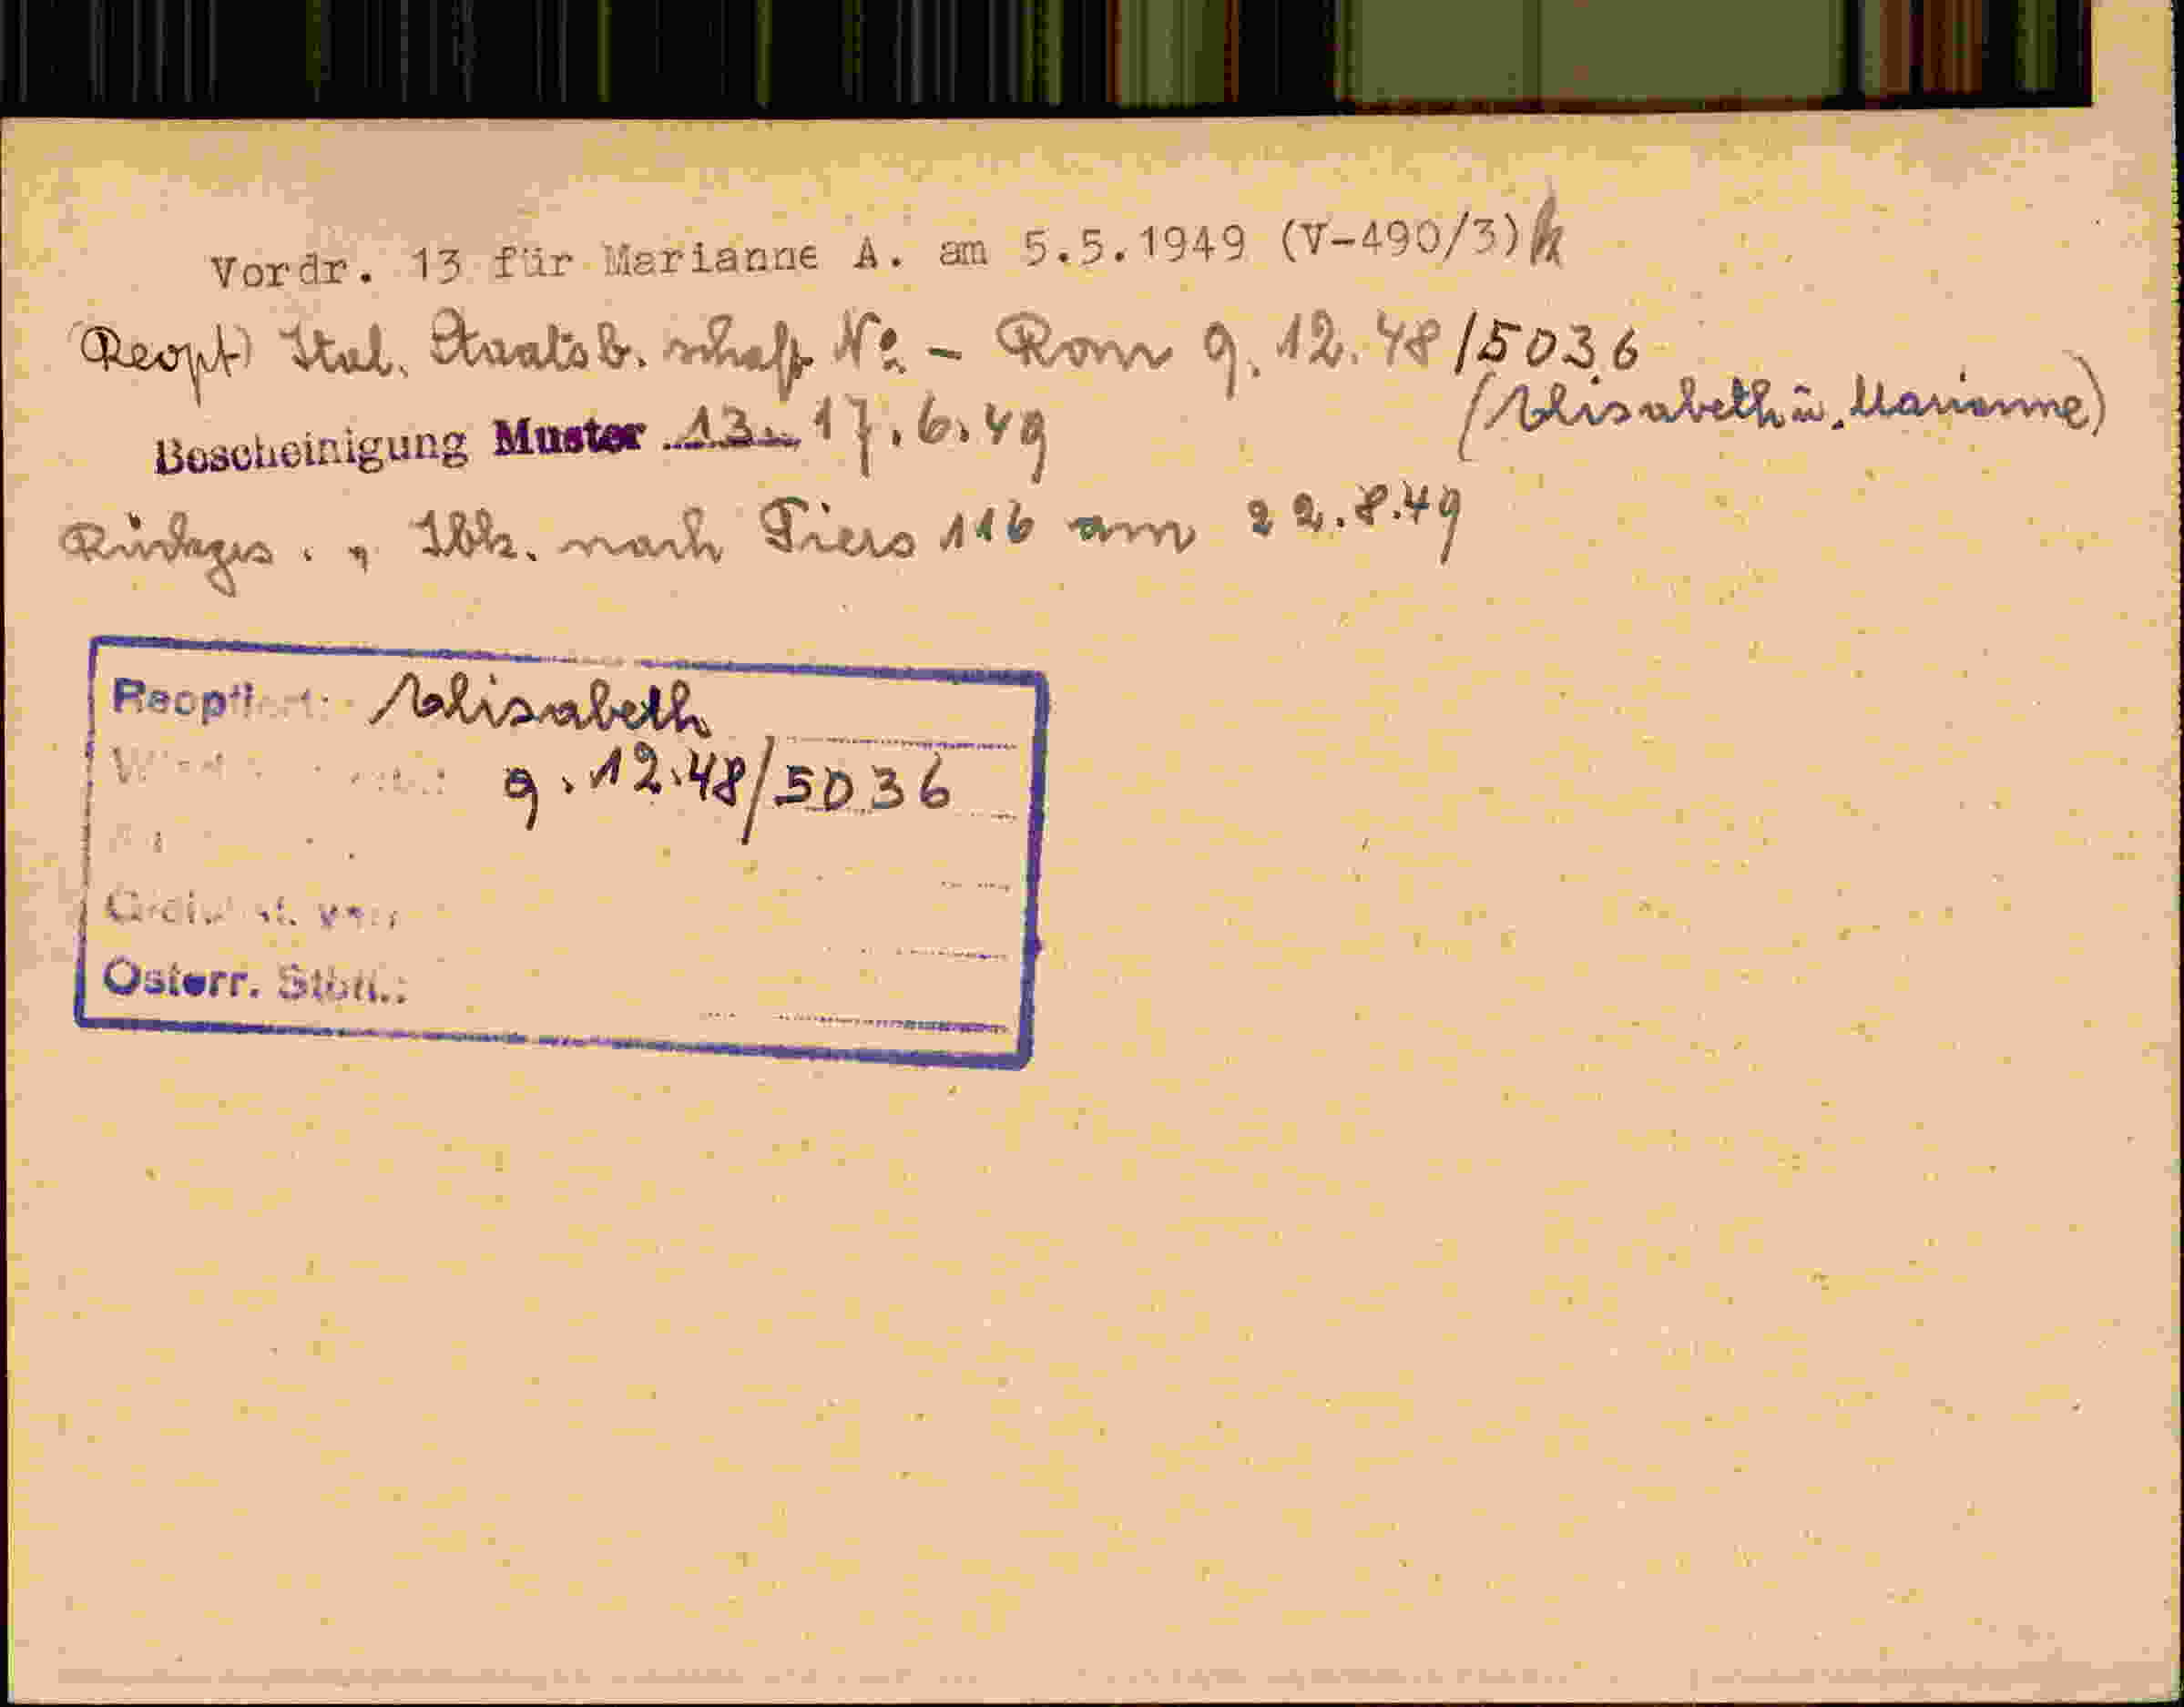 Vordr. 13 für Marianne A. am 5.5.1949 (V-490/3)
(Reopt) Ital. Staatsb.schaft No - Rom 9.12.48/5036
(Elisabeth u. Marianne)
Bescheinigung Muster 13. 17.6.49
Ibk. nach Tiers 116 am 22.8.49
Reoptiert: Elisabeth
9.12.48/5036
Österr. Stbü.: